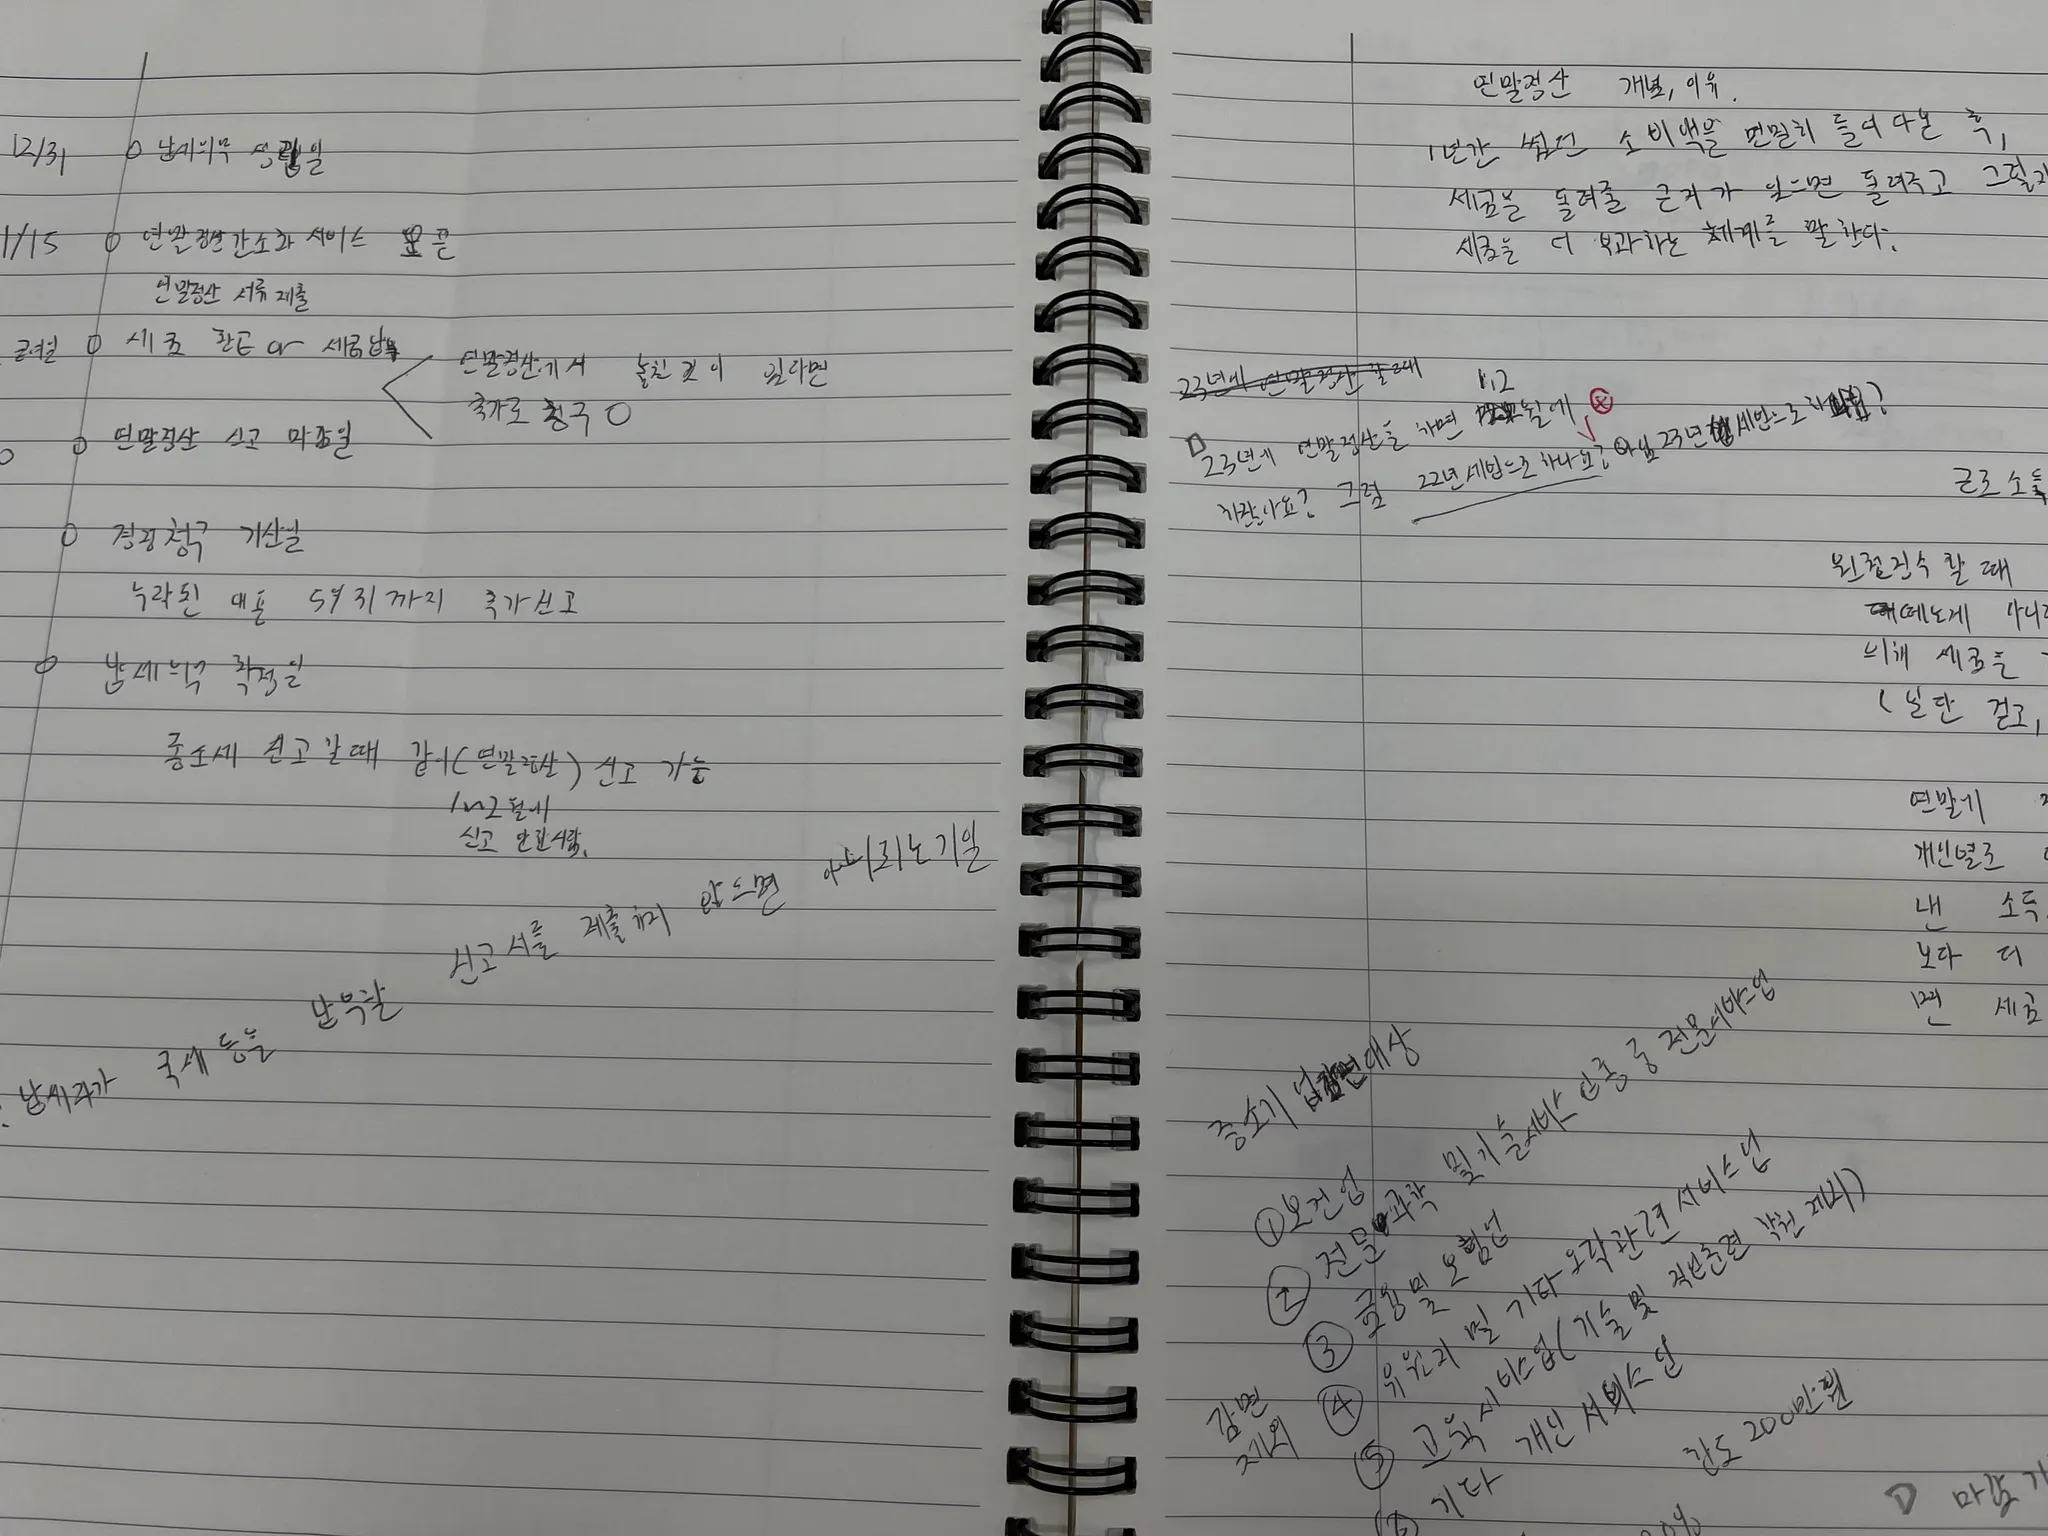 12/31 납세의무 성립일
1/15 연말정산간소화 서비스 오픈
연말정산 서류제출
급여일 세금 환급 or 세금납부
연말정산에서 놓친것이 있다면
추가로 청구 O
연말정산 신고 마감일
경정청구 기산일
누락된 대표 5월 31까지 추가신고
납세의무 확정일
종소세 신고할때 같이(연말정산) 신고 가능
신고 안한사람.
: 납세자가 국세 등을 납부할 신고서를 제출하지 않으면 기일
연말정산 개념, 이유.
1년간 썼던 소비액을 면밀히 들여다본 후,
세금을 돌려줄 근거가 있으면 돌려주고 그렇지
세금을 더 부과하는 체계를 말한다.
23년에 연말정산 할때
23년에 연말정산을 하면 1,2월에
하잖아요? 그럼 22년세법으로 하나요? 아님 23년 세법으로
근로소득
원천징수할때
아니라
의해 세금을
(일단 걷고,
연말에
개인별로
낸 소득
보다 더
면 세금
중소기업 감면대상
감면
제외
① 보건업
② 전문, 과학 및 기술서비스업종 중 전문서비스업
③ 금융 및 보험업
④ 유원지 및 기타 오락관련 서비스업
⑤ 교육서비스업(기술 및 직업훈련 학원 제외)
⑥ 기타 개인 서비스업
한도 200만원
마감